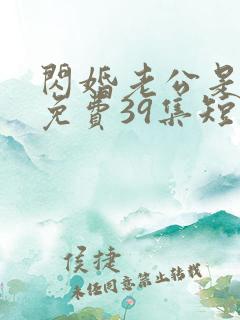 閃婚老公是
免費39集短
侯捷
未經同意禁止轉載